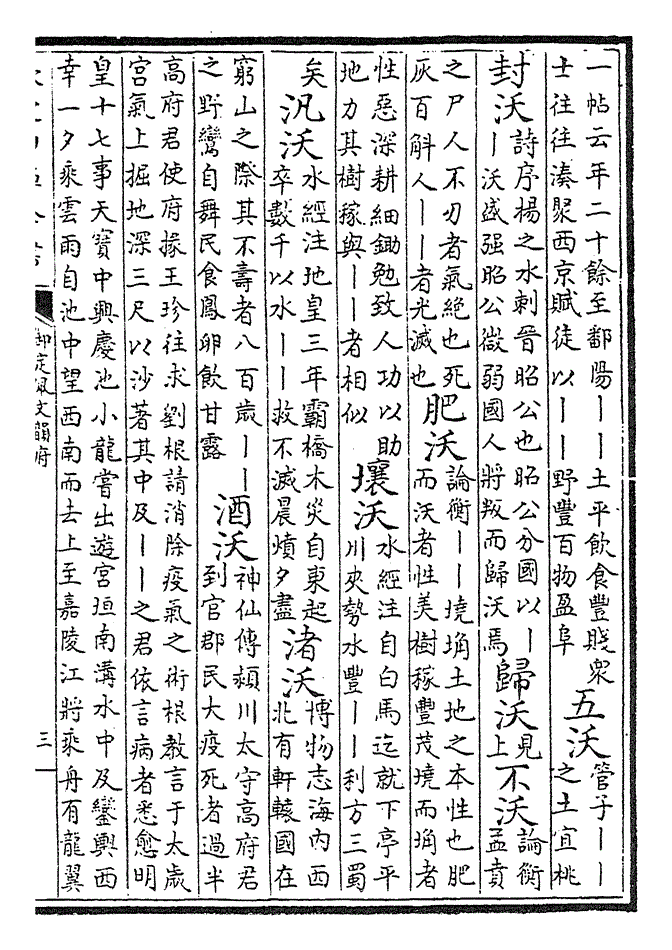 一帖云年二十餘至鄱陽丨丨土平飲食豐賤衆
士往往湊聚西京賦徒以丨丨野豐百物盈阜
五沃
管子丨丨
之土宜桃
封沃
詩序楊之水刺晉昭公也昭公分國以丨
丨沃盛强昭公微弱國人將叛而歸沃焉
歸沃
見
上
不沃
論衡
孟賁
之尸人不刃者氣絶也死
灰百斛人丨丨者光滅也
肥沃
論衡丨丨墝埆土地之本性也肥
而沃者性美樹稼豐茂墝而埆者
性惡深耕細鋤勉致人功以助
地力其樹稼與丨丨者相似
壤沃
水經注自白馬迄就下亭平
川夾勢水豐丨丨利方三蜀
矣
汎沃
水經注地皇三年霸橋木災自東起
卒數千以水丨丨救不滅晨燌夕盡
渚沃
博物志海内西
北有軒轅國在
窮山之際其不壽者八百歲丨丨
之野鸞自舞民食鳳卵飲甘露
酒沃
神仙傳潁川太守高府君
到官郡民大疫死者過半
高府君使府掾王珍往求劉根請消除疫氣之術根教言于太歲
宮氣上掘地深三尺以沙著其中及丨丨之君依言病者悉愈明
皇十七事天寶中興慶池小龍嘗出遊宮垣南溝水中及鑾輿西
幸一夕乘雲雨自池中望西南而去上至嘉陵江將乘舟有龍翼
御定佩文韻府
三